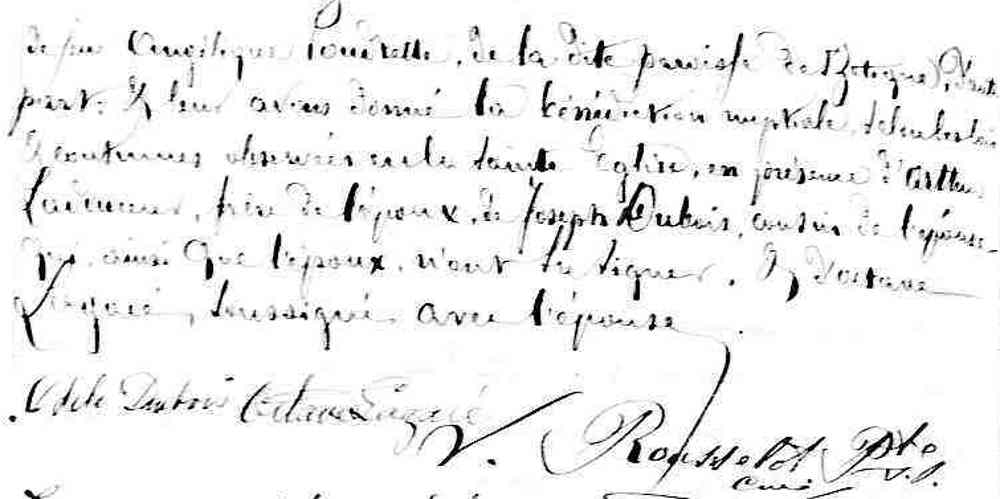 de feu Angélique Poudrette, de la dite paroisse de d'autre
part; & leur avons donné la bénédiction nuptiale, selon les lois
& coutumes observées en la sainte Eglise, en présence d'Arthur
Ladouceur, frère de l'époux, de Joseph Dubois, cousin de l'épouse
qui, ainsi que l'époux, n'ont su signer, & d'Octave
Legacé, soussigné avec l'épouse.
Adele Dubois Octave Lagacé
V. Rousselot Ptre
Curé S.S.